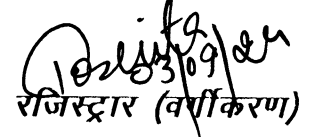 03/09/24
रजिस्ट्रार (वर्गीकरण)